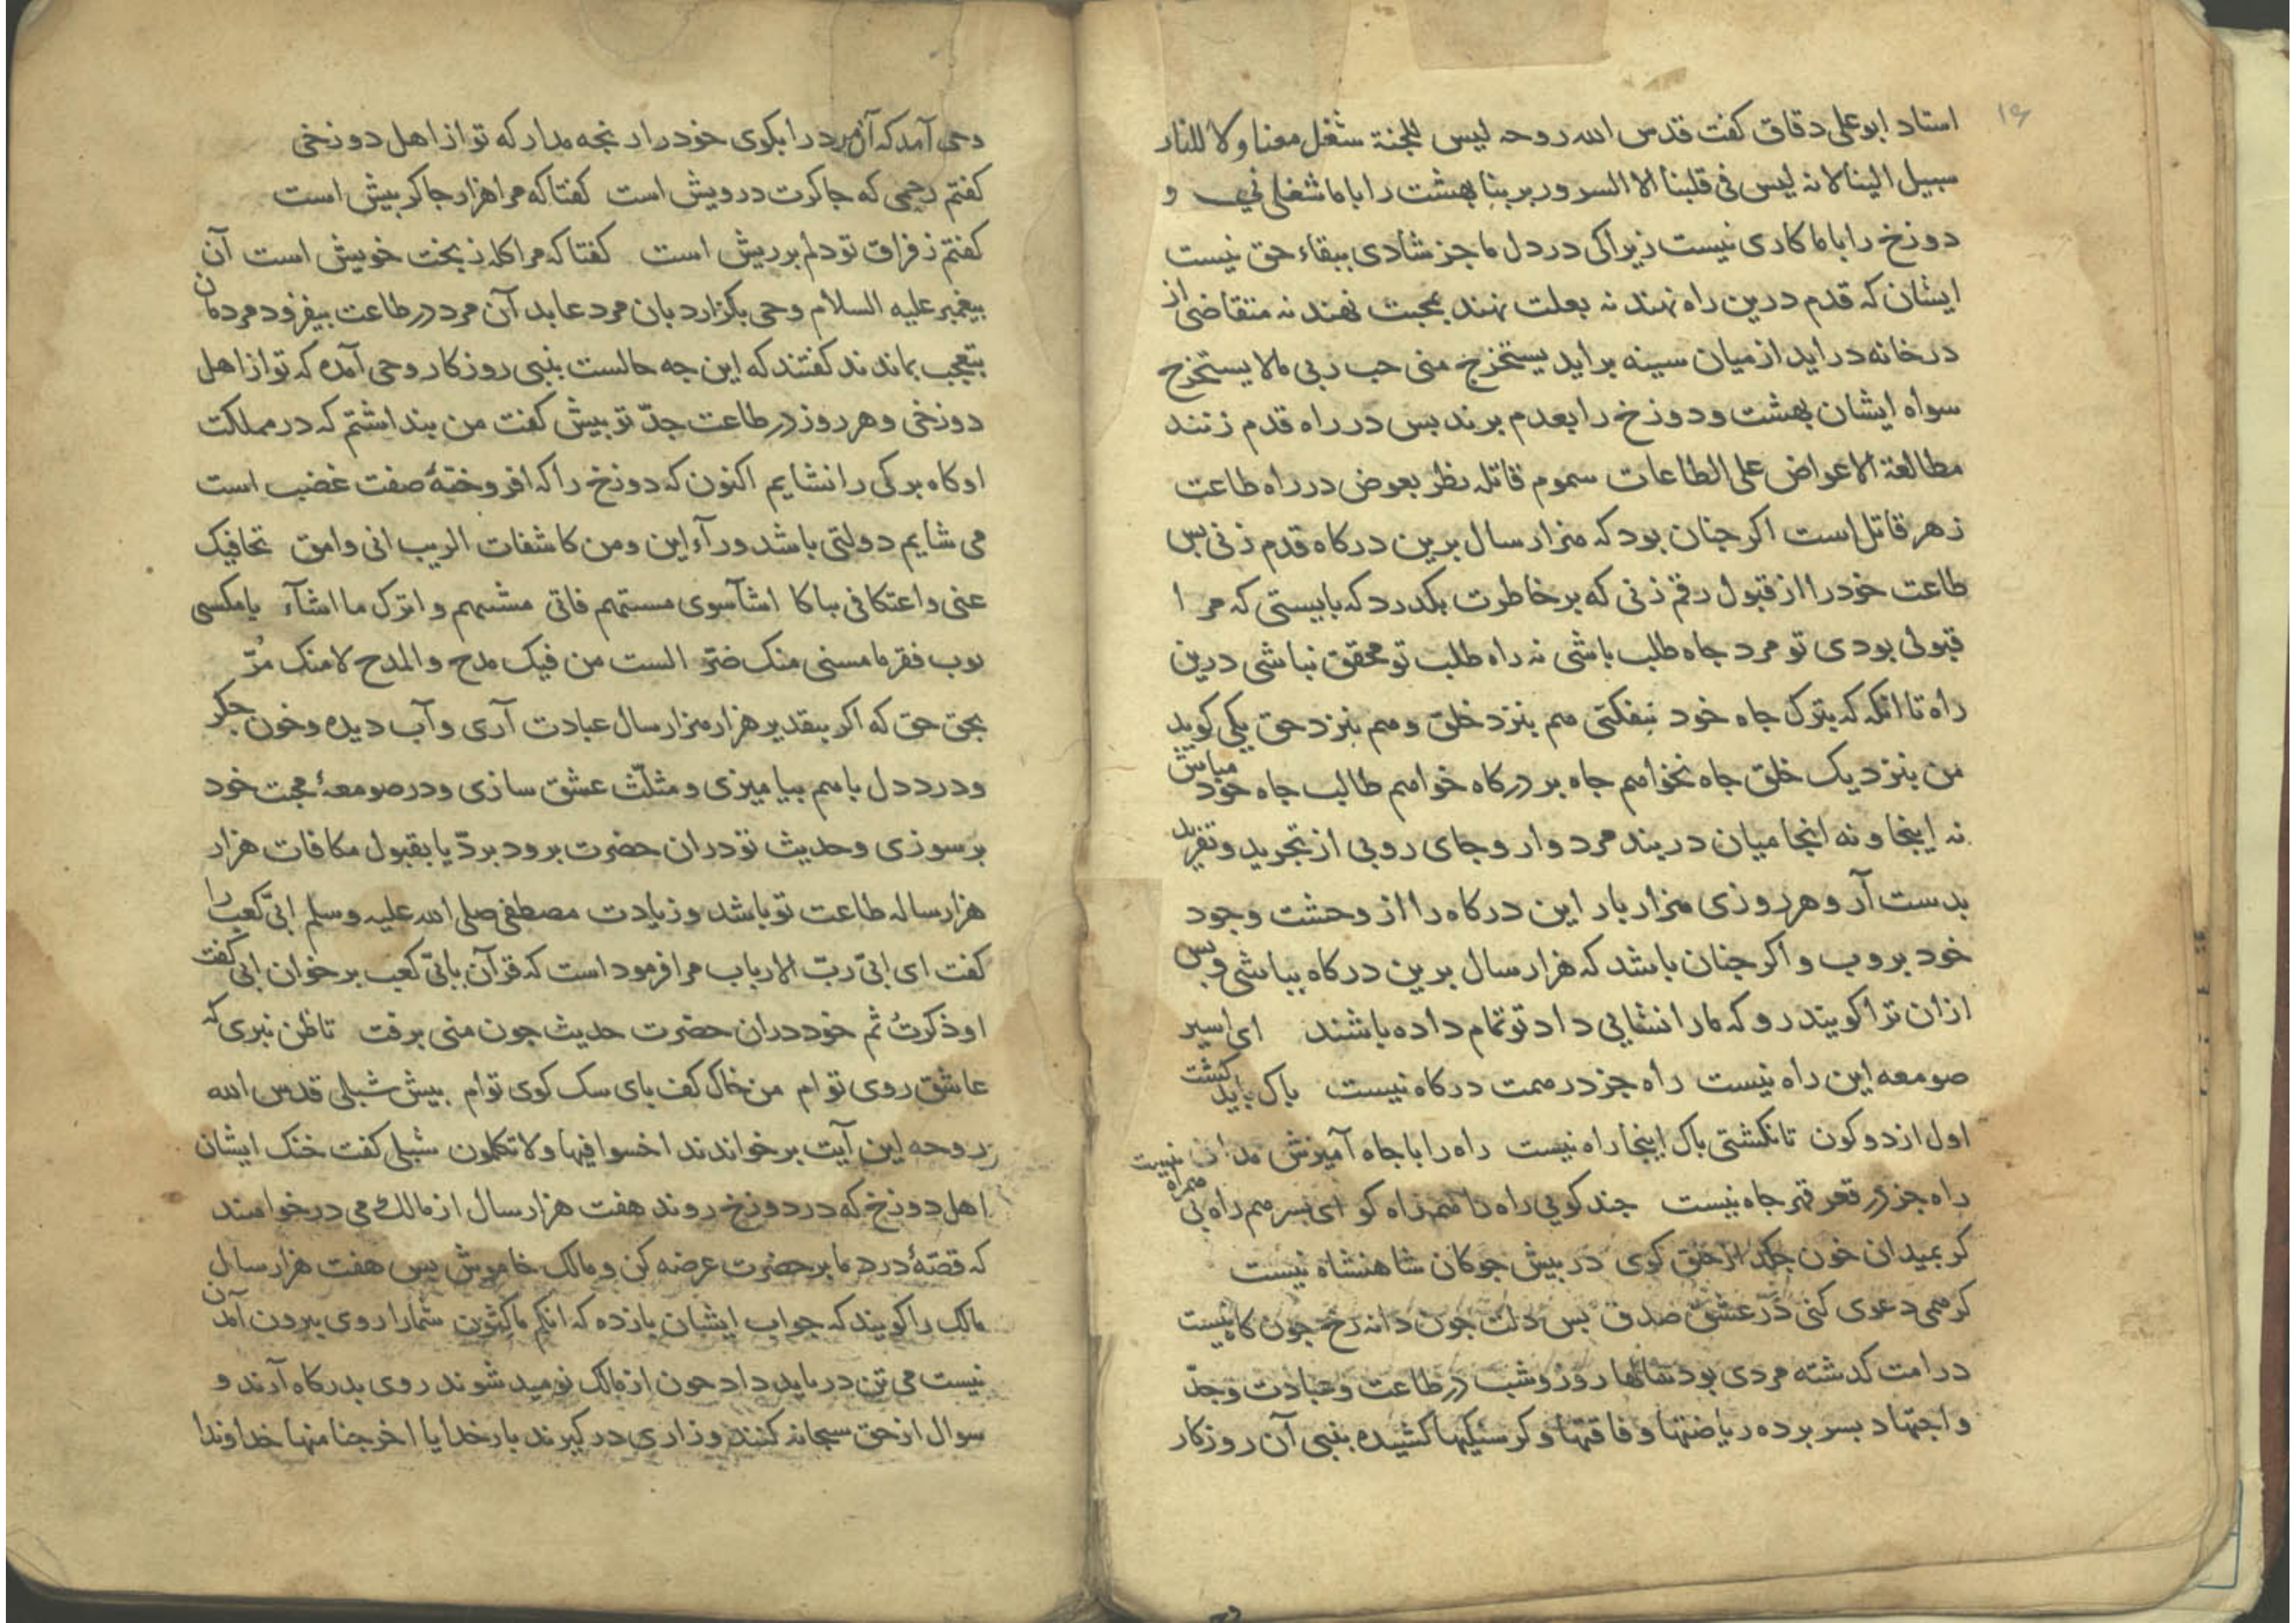 ۱۶
استاد ابو علی دقاق کفت قدس الله روحه لیس للجنة شغل معنا ولا للنار
سبیل الینا لانه لیس فی قلبنا الا السرور بربنا بهشت را باما شغلی نی و
دوزخ را باما کاری نیست زیراکی در دل ما جز شادی ببقاء حق نیست
ایشان که قدم درین راه نهند نه بعلت نهند بمحبت نهند نه متقاضی از
درخانه دراید از میان سینه براید یستخرج منی حب ربی مالا یستخرج
سواه ایشان بهشت و دوزخ را بعدم برند بس در راه قدم زنند
مطالعة الاعواض علی الطاعات سموم قاتله نظر بعوض در راه طاعت
زهر قاتل است اکر جنان بود که هزار سال برین درکاه قدم زنی بس
طاعت خود را از قبول رقم زنی که بر خاطرت بکدرد که بایستی که مرا
قبولی بودی تو مرد جاه طلب باشی نه راه طلب تو محقق نباشی درین
راه تا انکه که بترک جاه خود نبفکنی هم بنزد خلق و هم بنزد حق یکی کوید
من بنزدیک خلق جاه نخواهم جاه بر درکاه خواهم طالب جاه خود مباش
نه اینجا و نه انجا میان دربند مرد وار و جای روبی از تجرید و تفرید
بدست آر و هر روزی هزار بار این درکاه را از وحشت وجود
خود بروب و اکر جنان باشد که هزار سال برین درکاه بباشی و بس
ازان ترا کویند رو که مارا نشایی داد تو تمام داده باشند ای اسیر
صومعه این راه نیست راه جز در همت درکاه نیست باک باید کشت
اول از دو کون تا نکشتی باک اینجا راه نیست راه را با جاه آمیزش مدان نیست
راه جز در قعر جاه نیست جند کویی راه دانم راه کو ای بسر هم راه بی همراه
کر بمیدان خون جکد از حلق کوی در بیش جوکان شاهنشاه نیست
کر همی دعوی کنی در عشق صدق بس دلت جون دانه رخ جون کاه نیست
در امت کدشته مردی بود سالها روز و شب در طاعت و عبادت و جدّ
و اجتهاد بسر برده ریاضتها و فاقتها و کرسنکیها کشیده بنبی آن روزکار
وحی آمد که آن مرد را بکوی خود را رنجه مدار که تو از اهل دوزخی
کفتم رحمی که جاکرت درویش است کفتا که مرا هزار جاکر بیش است
کفتم ز فراق تو دلم بر ریش است کفتا که مرا کله ز بخت خویش است آن
بیغمبر علیه السلام وحی بکزارد بان مرد عابد آن مرد در طاعت بیفزود مردمان
بتعجب بماندند کفتند که این جه حالست بنبی روزکار وحی آمده که تو از اهل
دوزخی و هر روز در طاعت جدّ تو بیش کفت من بنداشتم که در مملکت
او کاه برکی را نشایم اکنون که دوزخ را که افروختهٔ صفت غضب است
می شایم دولتی باشد ورآء این ومن کاشفات الریب انی وامق تجافیک
عنی واعتکافی ببابکا اشآء سوی فانی واترک ما اشآء یامکسبی
ثوب فقر ما مسنی منک ضرّ الست من فیک مدح والمدح لا منک مُرّ
بحق حق که اکر بتقدیر هزار هزار سال عبادت آری و آب دیده و خون جکر
و درد دل باهم بیامیزی و مثلّث عشق سازی و در صومعهٔ محبت خود
برسوزی و حدیث تو دران حضرت برود بردّ یا بقبول مکافات هزار
هزار ساله طاعت تو باشد و زیادت مصطفی صلی الله علیه وسلم ابیّ کعب را
کفت ای ابیّ ربّ الارباب مرا فرمود است که قرآن بابیّ کعب برخوان ابی کفت
اوذکرتُ ثم خود دران حضرت حدیث جون منی برفت تا ظن نبری که
عاشق روی توام من خاک کف بای سک کوی توام بیش شبلی قدس الله
روحه این آیت برخواندند اخسوا فیها ولا تکلمون شبلی کفت خنک ایشان
اهل دوزخ که در دوزخ روند هفت هزار سال از مالک می درخواهند
که قصّهٔ درد ما بر حضرت عرضه کن و مالک خاموش بس هفت هزار سال
مالک را کویند که جواب ایشان باز ده که انکم ماکثون شمارا روی بیرون آمدن
نیست می تن در باید داد جون از مالک نومید شوند روی بدرکاه آرند و
سوال از حق سبحانه کنند و زاری در کیرند بار خدایا اخرجنا منها خداوندا